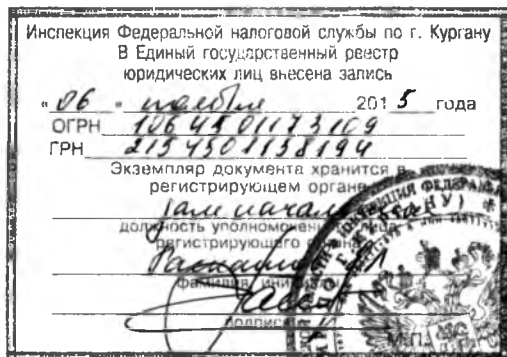 Инспекция Федеральной налоговой службы по г. Кургану
В Единый государственный реестр
юридических лиц внесена запись
« 06 » ноября 2015 года
ОГРН 1064501173109
ГРН 2154501158194
Экземпляр документа хранится в
регистрирующем органе
Зам. начальника
должность уполномоченного лица
регистрирующего органа
фамилия, инициалы
подпись
М.П.